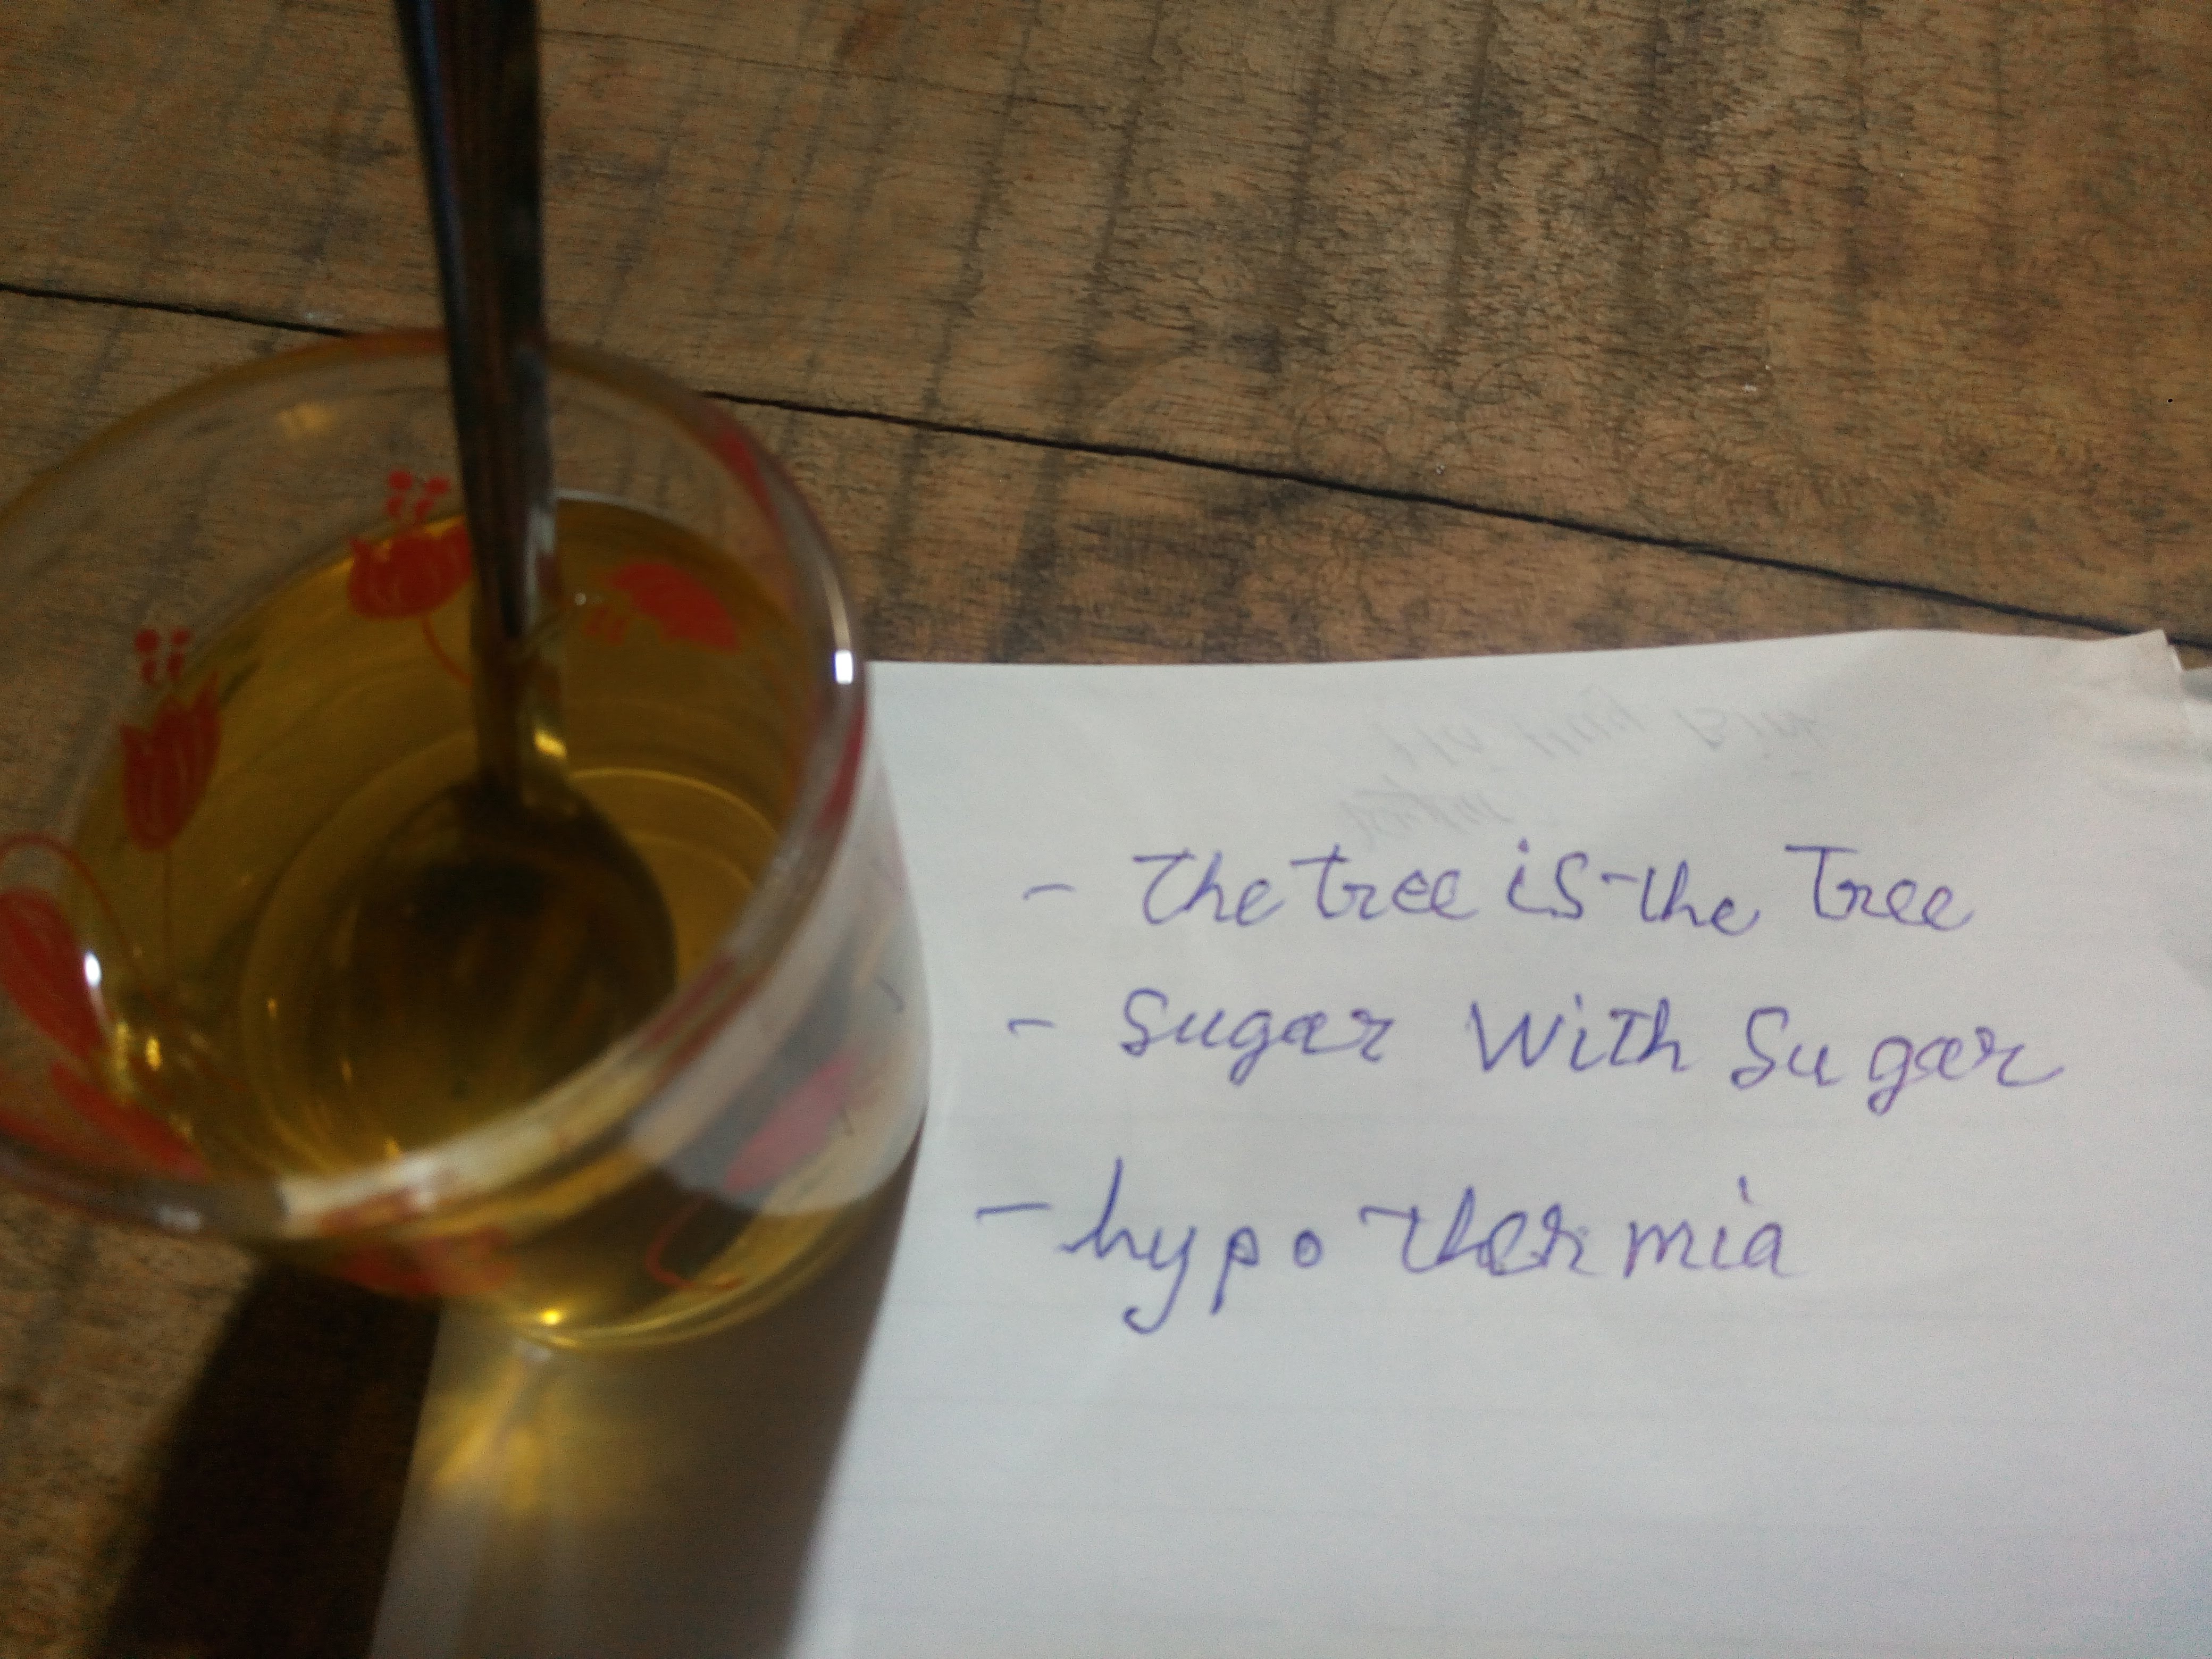 - The tree is the Tree
- Sugar With Sugar
- hypothermia